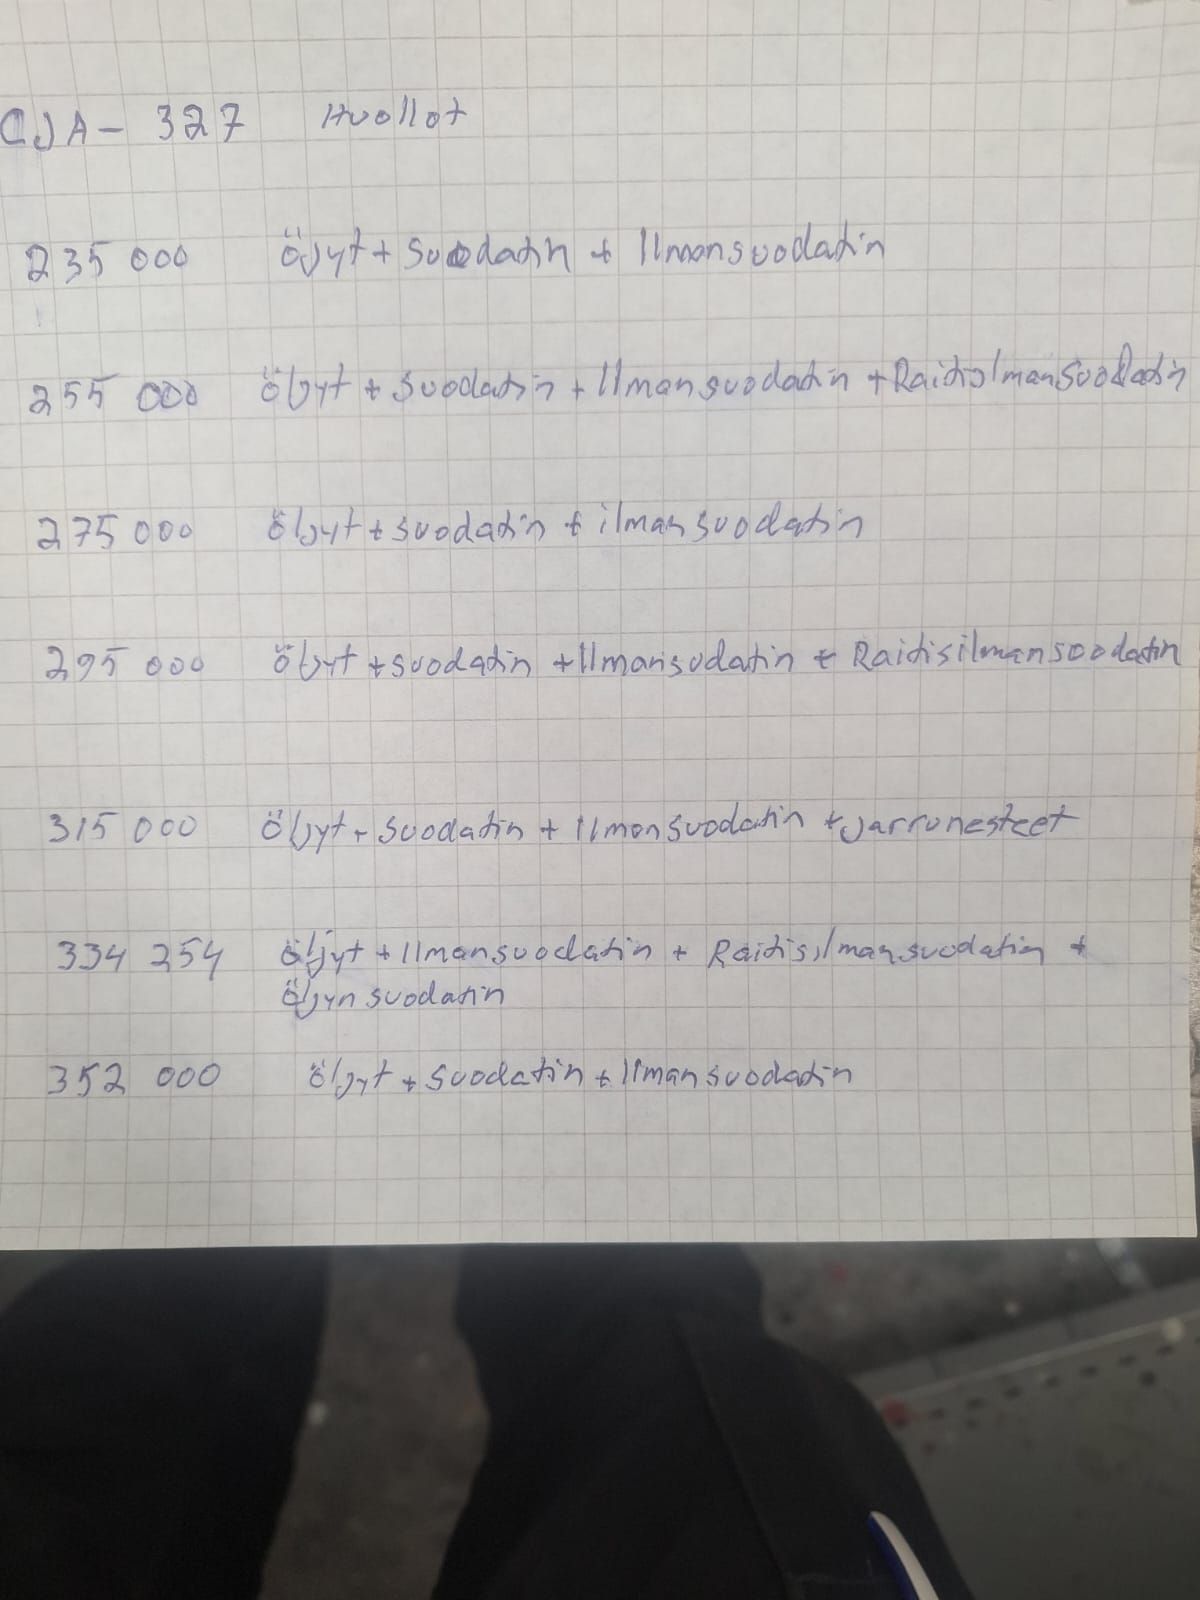 CJA - 327 Huollot
235 000 Öjyt + Suodatin + Ilmansuodatin
255 000 Öljyt + Suodatin + Ilmansuodatin + Raitisilmansuodatin
275 000 Öljyt + suodatin + ilmansuodatin
295 000 Öljyt + suodatin + Ilmansudatin + Raitisilmansuodatin
315 000 Öljyt + Suodatin + Ilmansuodatin + Jarrunesteet
334 254 Öljyt + Ilmansuodatin + Raitisilmansuodatin +
Öljyn suodatin
352 000 Öljyt + Suodatin + Ilmansuodatin